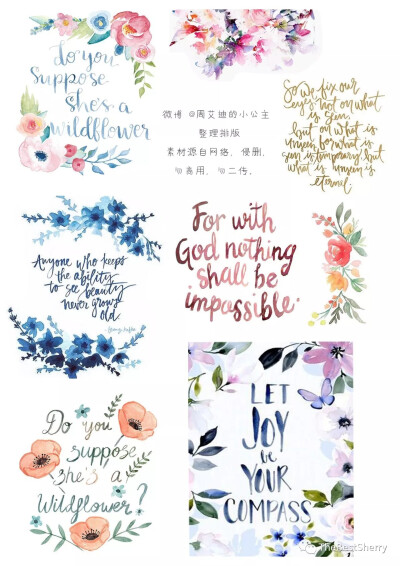 do you
suppose
she's a
wildflower
微博 @周艾迪的小公主
整理排版
素材源自网络，侵删，
商用，二传。
So we fix our
eyes not on what
is seen,
but on what is
unseen, for what is
seen is temporary, but
what is unseen is
eternal.
Anyone who keeps
the ability
to see beauty
never grows
old.
For with
God nothing
shall be
impossible.
Do you
suppose
she's a
Wildflower?
LET
JOY
be
YOUR
COMPASS
TheBestSherry